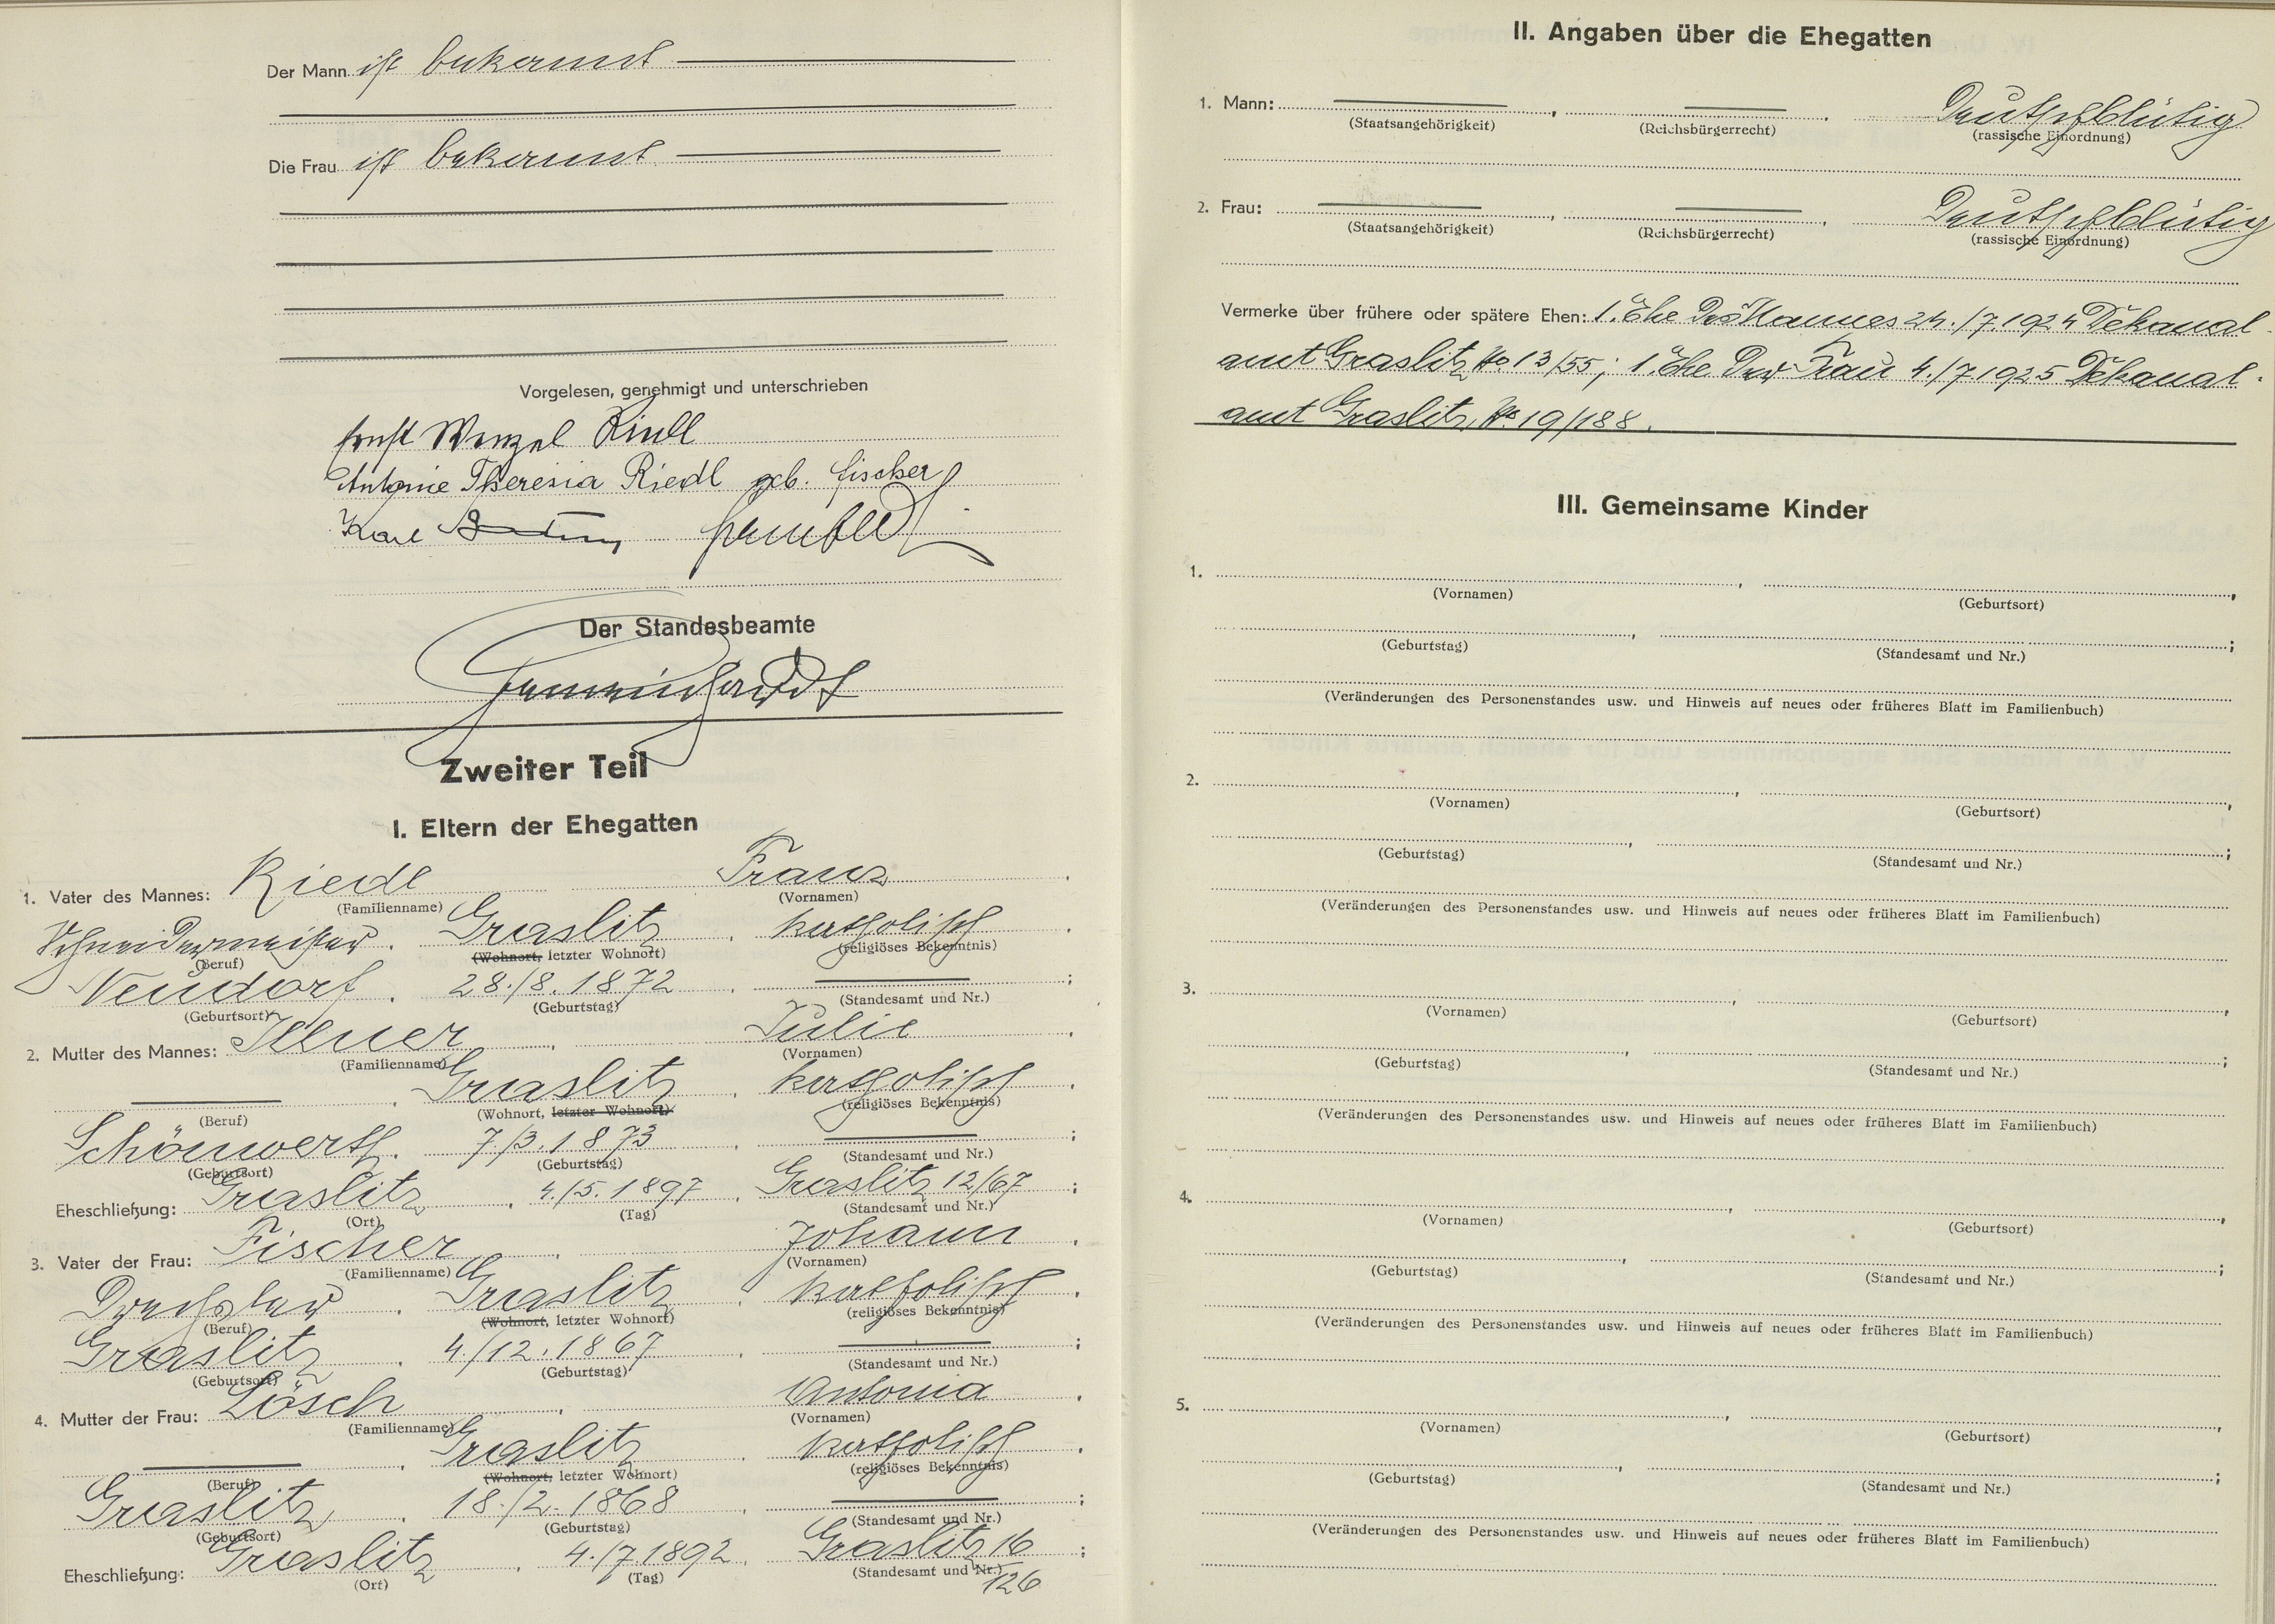 Der Mann ist bekannt
Die Frau ist bekannt
Vorgelesen, genehmigt und unterschrieben
Ernst Wenzel Riedl
Antonie Theresia Riedl geb. Fischer
Karl
Der Standesbeamte
Zweiter Teil
I. Eltern der Ehegatten
1. Vater des Mannes: Riedl Franz
(Familienname) (Vornamen)
Schneidermeister. Graslitz. katholisch.
(Beruf) (Wohnort, letzter Wohnort) (religiöses Bekenntnis)
Neudorf. 28./8.1872.
(Geburtsort) (Geburtstag) (Standesamt und Nr.)
2. Mutter des Mannes: Illner Julie
(Familienname) (Vornamen)
Graslitz. katholisch.
(Beruf) (Wohnort, letzter Wohnort) (religiöses Bekenntnis)
Schönwerth. 7./3.1873.
(Geburtsort) (Geburtstag) (Standesamt und Nr.)
Eheschließung: Graslitz, 4./5.1897. Graslitz 12/67;
(Ort) (Tag) (Standesamt und Nr.)
3. Vater der Frau: Fischer Johann
(Familienname) (Vornamen)
Drechsler. Graslitz. katholisch.
(Beruf) (Wohnort, letzter Wohnort) (religiöses Bekenntnis)
Graslitz. 4./12.1867.
(Geburtsort) (Geburtstag) (Standesamt und Nr.)
4. Mutter der Frau: Lösch, Antonia.
(Familienname) (Vornamen)
Graslitz. katholisch.
(Beruf) (Wohnort, letzter Wohnort) (religiöses Bekenntnis)
Graslitz. 18./2.1868.
(Geburtsort) (Geburtstag) (Standesamt und Nr.)
Eheschließung: Graslitz, 4./7.1892. Graslitz 16;
(Ort) (Tag) (Standesamt und Nr.) /126
II. Angaben über die Ehegatten
1. Mann: , . Deutschblütig
(Staatsangehörigkeit) (Reichsbürgerrecht) (rassische Einordnung)
2. Frau: , . Deutschblütig
(Staatsangehörigkeit) (Reichsbürgerrecht) (rassische Einordnung)
Vermerke über frühere oder spätere Ehen: 1. Ehe des Mannes 24./7.1924 Dekanal-
amt Graslitz No 13/55; 1. Ehe der Frau 4./7.1925 Dekanal-
amt Graslitz, No 19/188.
III. Gemeinsame Kinder
1. , ,
(Vornamen) (Geburtsort)
(Geburtstag) (Standesamt und Nr.)
(Veränderungen des Personenstandes usw. und Hinweis auf neues oder früheres Blatt im Familienbuch)
2. , ,
(Vornamen) (Geburtsort)
(Geburtstag) (Standesamt und Nr.)
(Veränderungen des Personenstandes usw. und Hinweis auf neues oder früheres Blatt im Familienbuch)
3. , ,
(Vornamen) (Geburtsort)
(Geburtstag) (Standesamt und Nr.)
(Veränderungen des Personenstandes usw. und Hinweis auf neues oder früheres Blatt im Familienbuch)
4. , ,
(Vornamen) (Geburtsort)
(Geburtstag) (Standesamt und Nr.)
(Veränderungen des Personenstandes usw. und Hinweis auf neues oder früheres Blatt im Familienbuch)
5. , ,
(Vornamen) (Geburtsort)
(Geburtstag) (Standesamt und Nr.)
(Veränderungen des Personenstandes usw. und Hinweis auf neues oder früheres Blatt im Familienbuch)